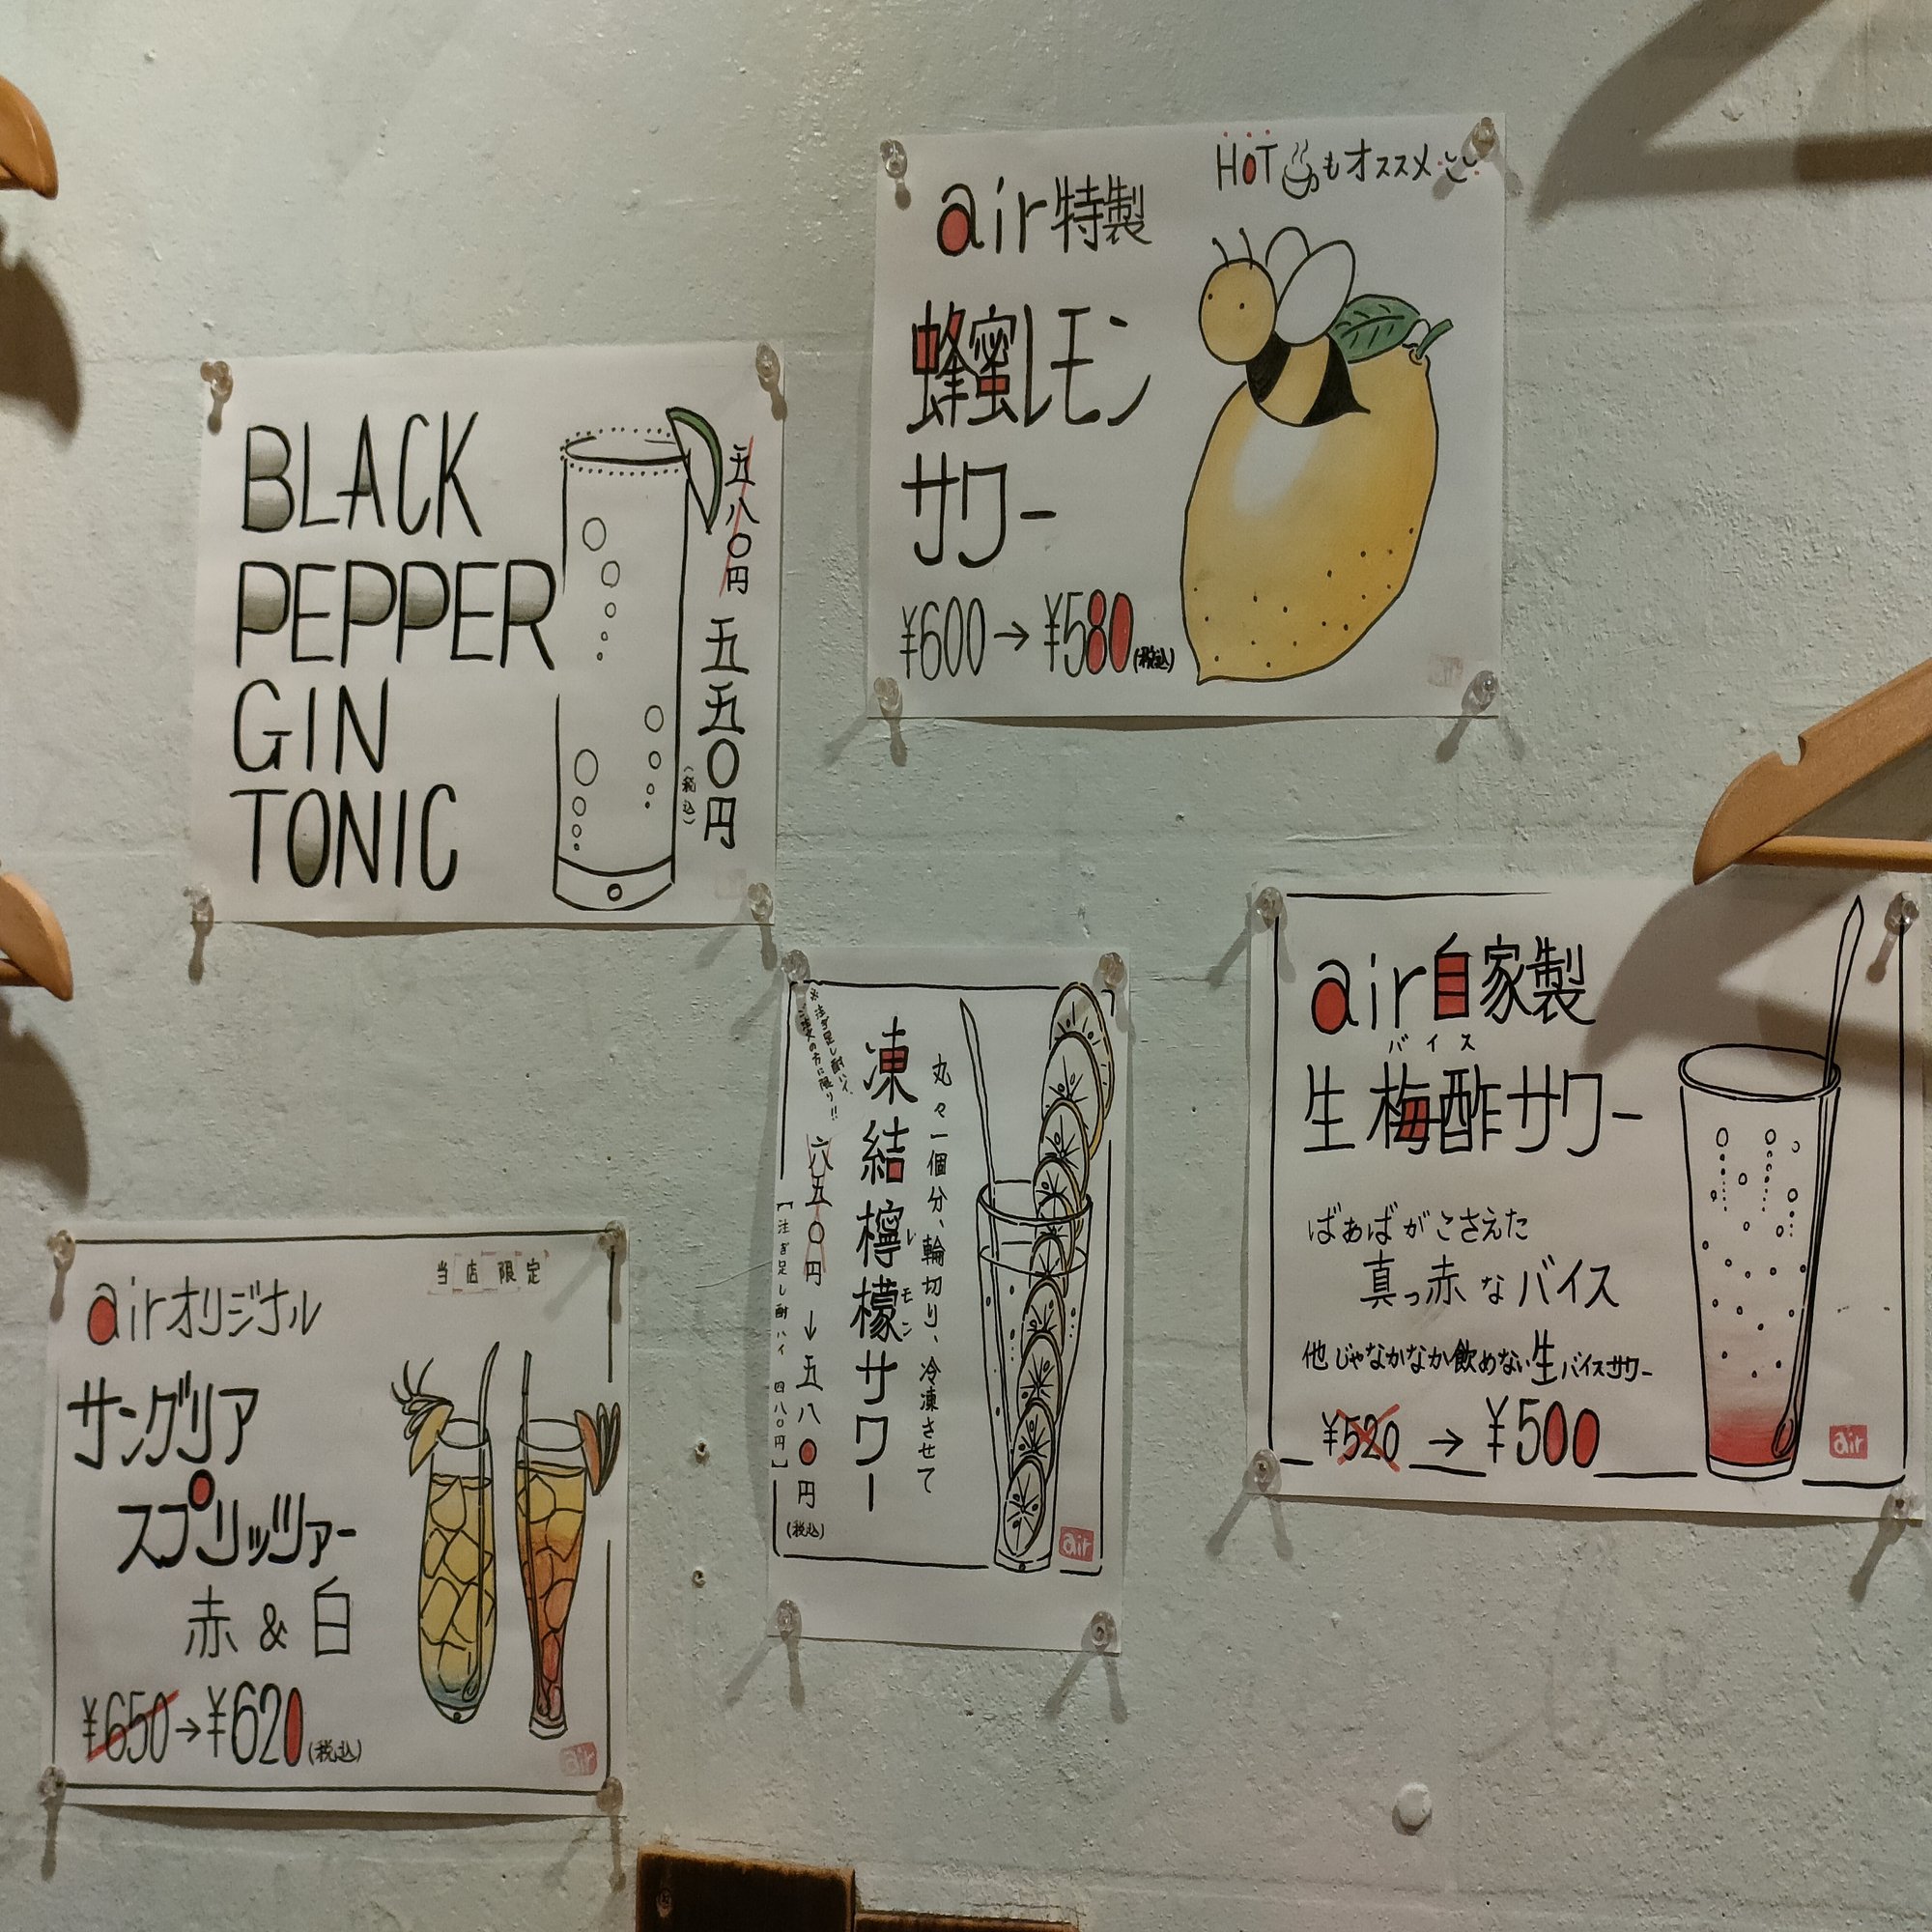 BLACK
PEPPER
GIN
TONIC
五八〇円
五五〇円
(税込)
HOTもオススメ
air特製
蜂蜜レモン
サワー
¥600→¥580(税込)
air自家製
バイス
生梅酢サワー
ばぁばがこさえた
真っ赤なバイス
他じゃなかなか飲めない生バイスサワー
¥520→¥500
air
丸々一個分、輪切り、冷凍させて
凍結檸檬サワー
レモン
※注ぎ足し酎ハイ、
ご注文の方に限り!!
六五〇円→五八〇円
(税込)
【注ぎ足し酎ハイ 四八〇円】
air
当店限定
airオリジナル
サングリア
スプリッツァー
赤&白
¥650→¥620(税込)
air